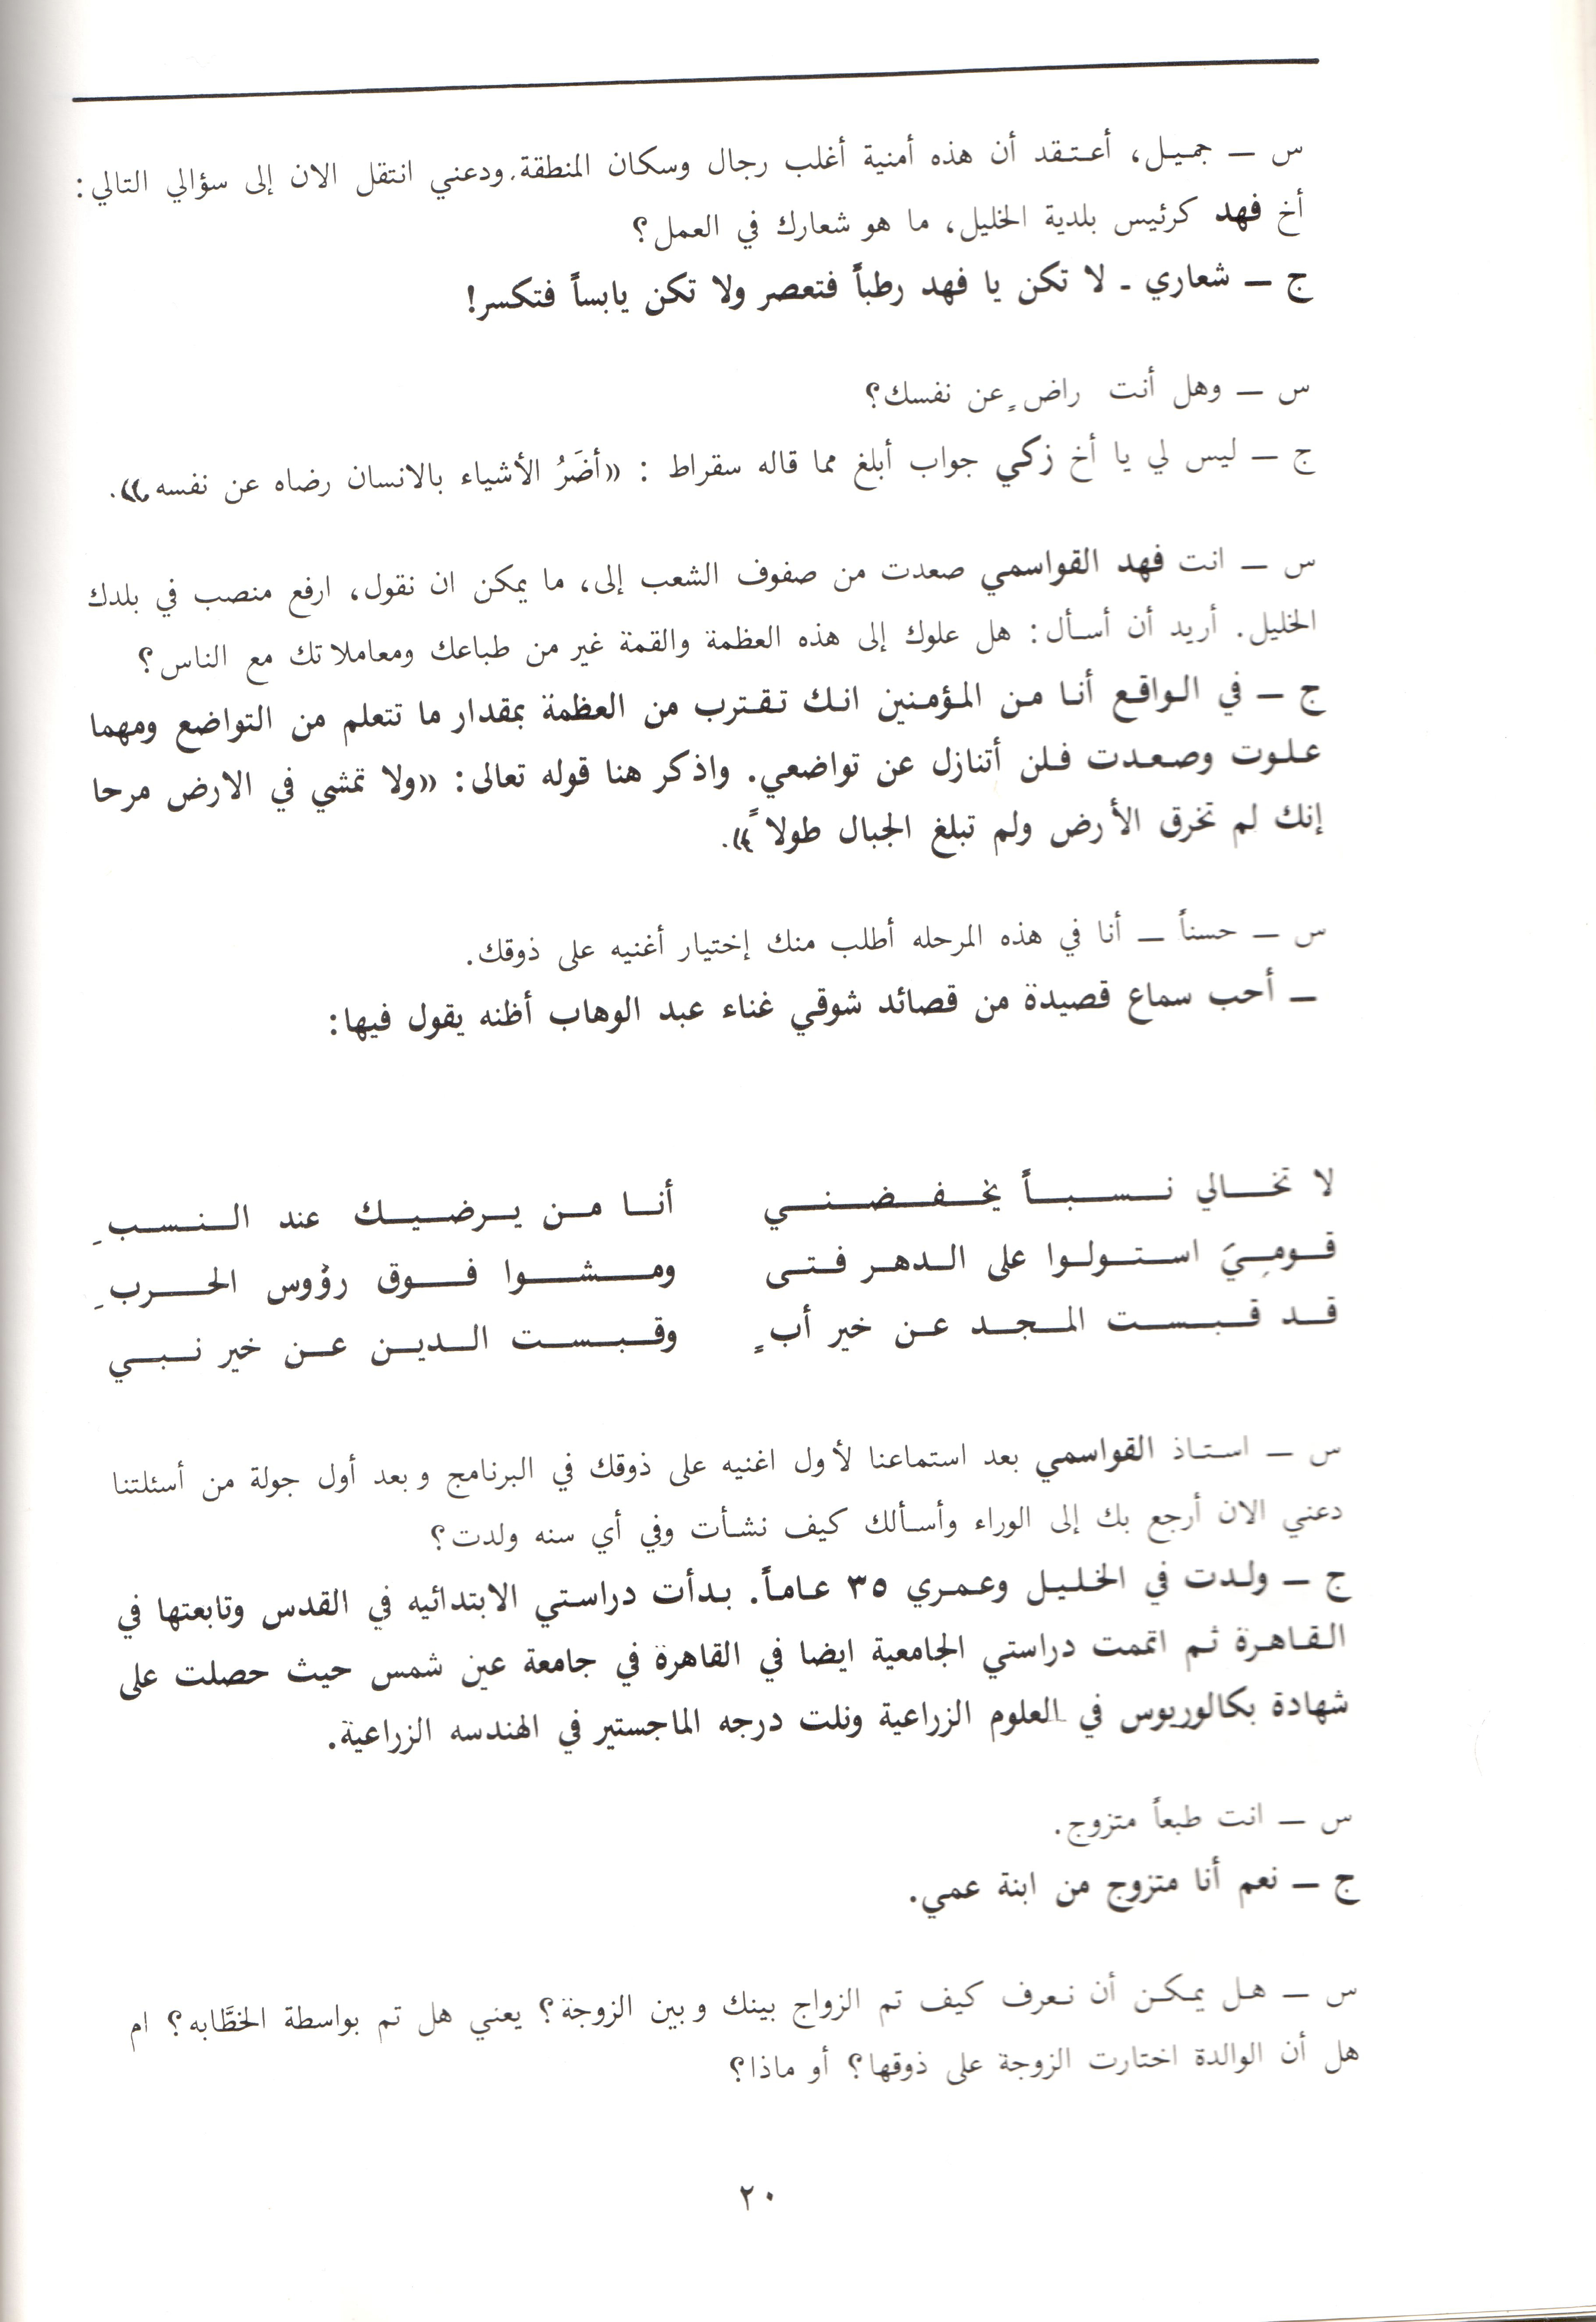 س ــ جميل، أعتقد أن هذه أمنية أغلب رجال وسكان المنطقة. ودعني انتقل الان إلى سؤالي التالي:
أخ فهد كرئيس بلدية الخليل، ما هو شعارك في العمل؟
ج ــ شعاري ـ لا تكن يا فهد رطباً فتعصر ولا تكن يابساً فتكسر!
س ــ وهل أنت راضٍ عن نفسك؟
ج ــ ليس لي يا أخ زكي جواب أبلغ مما قاله سقراط : «أضَرُ الأشياء بالانسان رضاه عن نفسه».
س ــ انت فهد القواسمي صعدت من صفوف الشعب إلى، ما يمكن ان نقول، ارفع منصب في بلدك
الخليل. أريد أن أسأل: هل علوك إلى هذه العظمة والقمة غير من طباعك ومعاملاتك مع الناس؟
ج ــ في الواقع أنا من المؤمنين انك تقترب من العظمة بمقدار ما تتعلم من التواضع ومهما
علوت وصعدت فلن أتنازل عن تواضعي. واذكر هنا قوله تعالى: «ولا تمشي في الارض مرحا
إنك لم تخرق الأرض ولم تبلغ الجبال طولاً».
س ــ حسناً ــ أنا في هذه المرحله أطلب منك إختيار أغنيه على ذوقك.
ــ أحب سماع قصيدة من قصائد شوقي غناء عبد الوهاب أظنه يقول فيها:
لا تخالي نسباً يخفضني أنا من يرضيك عند النسبِ
قوميَ استولوا على الدهر فتى ومشوا فوق رؤوس الحربِ
قد قبست المجد عن خير أبٍ وقبست الدين عن خير نبي
س ــ استاذ القواسمي بعد استماعنا لأول اغنيه على ذوقك في البرنامج وبعد أول جولة من أسئلتنا
دعني الان أرجع بك إلى الوراء وأسألك كيف نشأت وفي أي سنه ولدت؟
ج ــ ولدت في الخليل وعمري ٣٥ عاماً. بدأت دراستي الابتدائيه في القدس وتابعتها في
القاهرة ثم اتممت دراستي الجامعية ايضا في القاهرة في جامعة عين شمس حيث حصلت على
شهادة بكالوريوس في العلوم الزراعية ونلت درجه الماجستير في الهندسه الزراعية.
س ــ انت طبعاً متزوج.
ج ــ نعم أنا متزوج من ابنة عمي.
س ــ هل يمكن أن نعرف كيف تم الزواج بينك وبين الزوجة؟ يعني هل تم بواسطة الخطَّابه؟ ام
هل أن الوالدة اختارت الزوجة على ذوقها؟ أو ماذا؟
٢٠